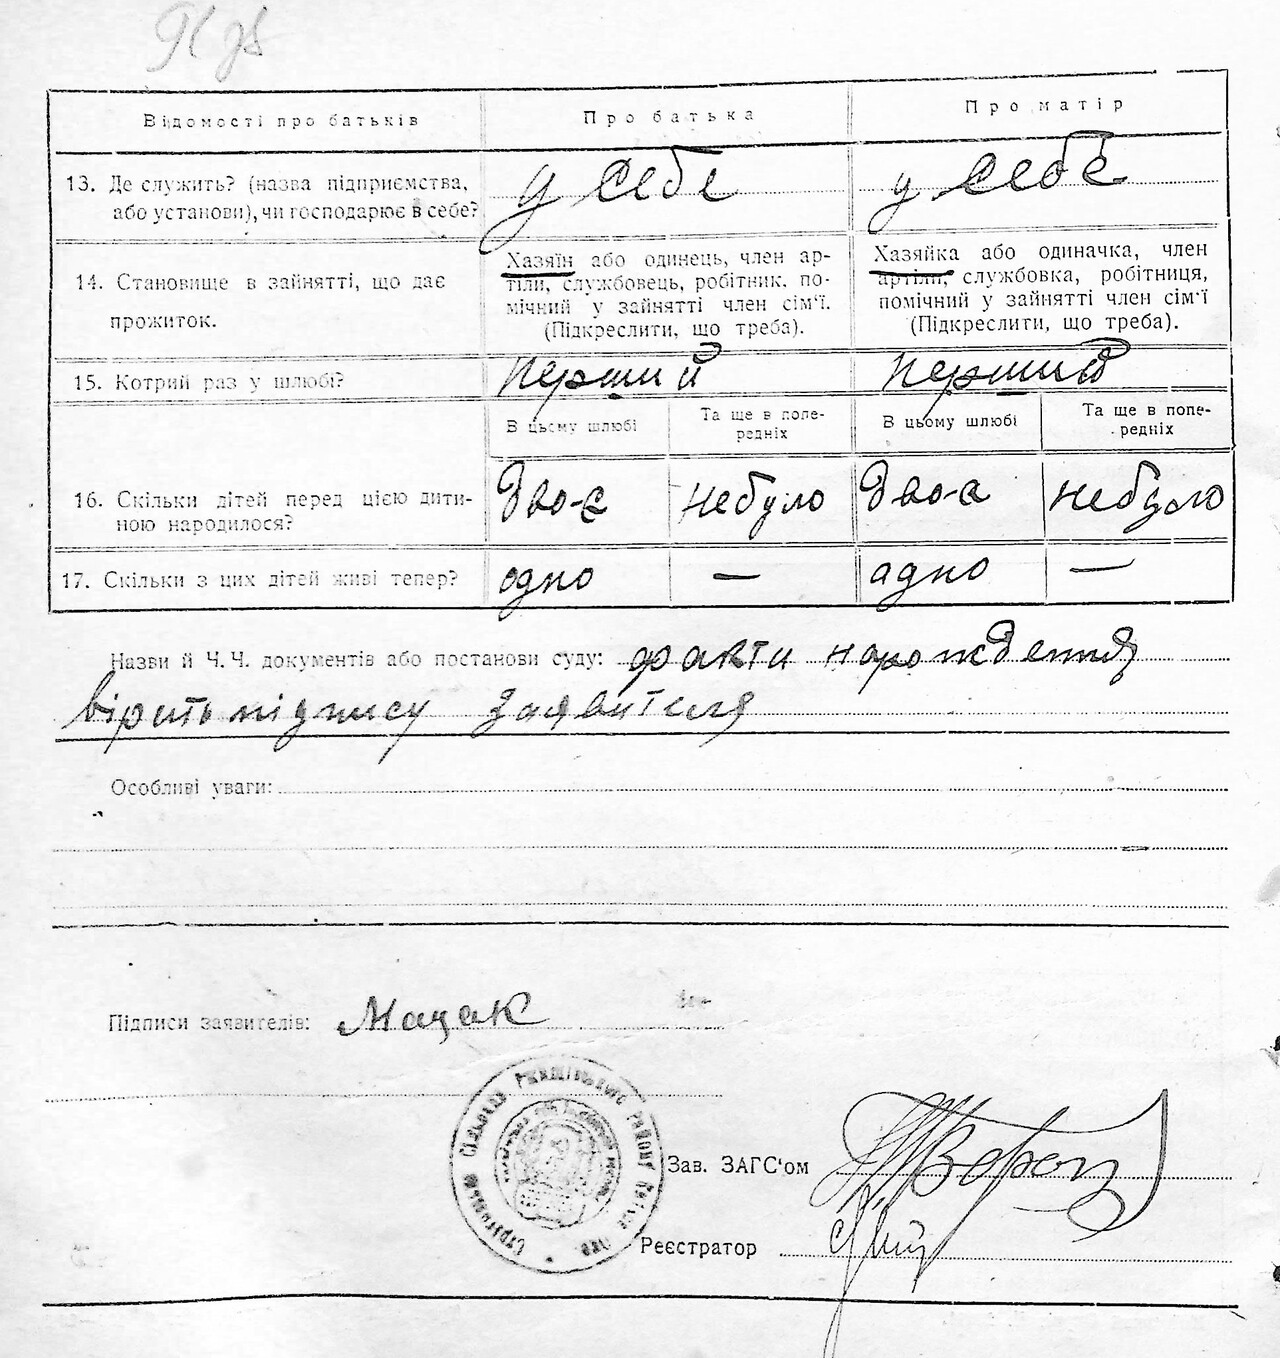 Відомості про батьків
Про батька
Про матір
13. Де служить? (назва підприємства, або установи), чи господарює в себе?
у себе
у себе
14. Становище в зайнятті, що дає прожиток.
Хазяїн або одинець, член ар-
тіли, службовець, робітник, по-
мічний у зайнятті член сім'ї.
(Підкреслити, що треба).
Хазяйка або одиначка, член
артіли, службовка, робітниця,
помічний у зайнятті член сім'ї
(Підкреслити, що треба).
15. Котрий раз у шлюбі?
перший
перший
В цьому шлюбі
Та ще в попе-
редніх
В цьому шлюбі
Та ще в попе-
редніх
16. Скільки дітей перед цією дити-
ною народилося?
двоє
небуло
двоє
небуло
17. Скільки з цих дітей живі тепер?
одно
—
адно
—
Назви й Ч. Ч. документів або постанови суду: факти нарождення
вірить підпису заявителя
Особливі уваги:
Підписи заявителів: Мацак
Сільрада Ржищівського району
Зав. ЗАГС'ом
Реєстратор